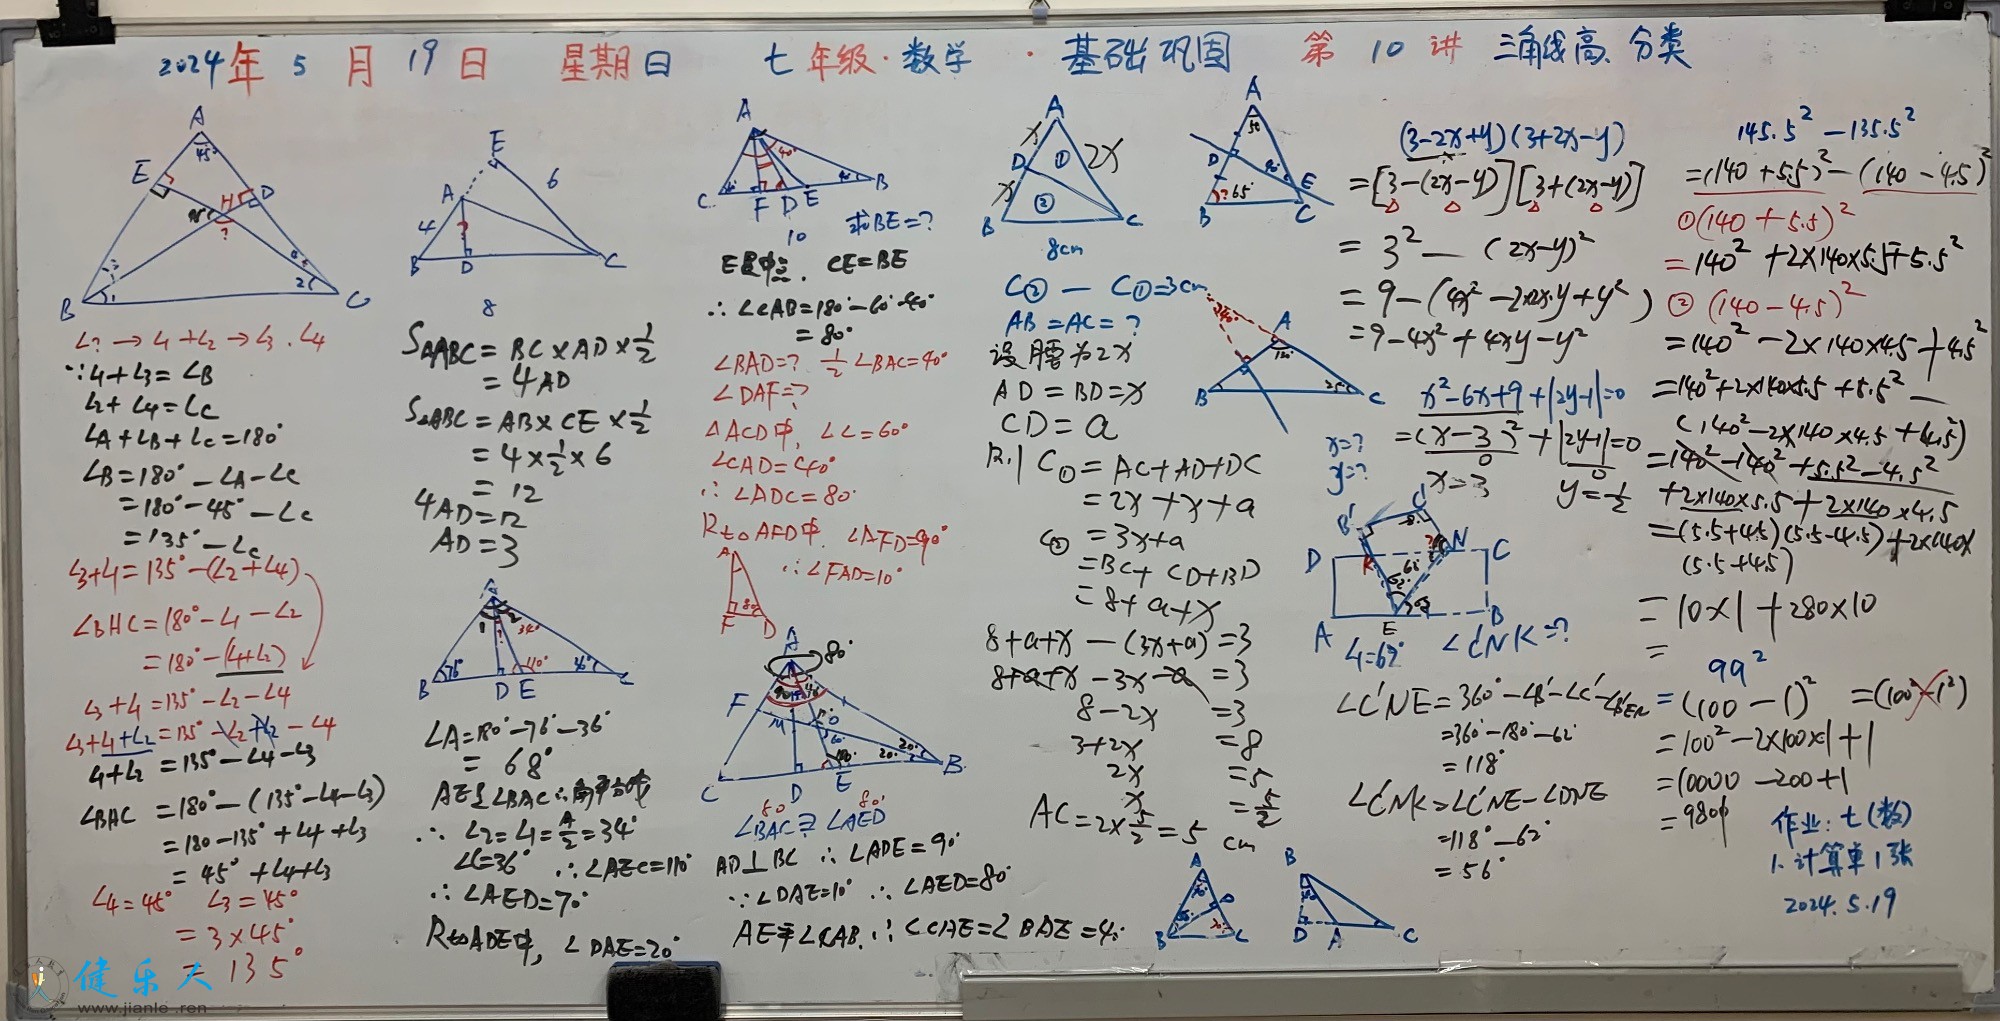 2024年 5 月 19 日 星期日 七年级·数学·基础巩固 第 10 讲 三角线高.分类
A
45°
E
H
D
?
B
C
∠? → ∠1+∠2 → ∠3.∠4
∵∠1+∠3=∠B
∠2+∠4=∠C
∠A+∠B+∠C=180°
∠B=180°-∠A-∠C
=180°-45°-∠C
=135°-∠C
∠3+∠1=135°-(∠2+∠4)
∠BHC=180°-∠1-∠2
=180°-(∠1+∠2)
∠3+∠1=135°-∠2-∠4
∠3+∠1+∠2=135°-∠2+∠2-∠4
∠1+∠2=135°-∠4-∠3
∠BAC=180°-(135°-∠4-∠3)
=180-135°+∠4+∠3
=45°+∠4+∠3
∠4=45° ∠3=45°
=3×45°
=135°
E
A
6
4
?
B
D
C
8
S△ABC=BC×AD×1/2
=4AD
S△ABC=AB×CE×1/2
=4×1/2×6
=12
4AD=12
AD=3
A
1 2
34°
76°
110°
36°
B
D E
C
∠A=180°-76°-36°
=68°
∴∠2=∠1=A/2=34°
∠C=36° ∴∠AEC=110°
∴∠AED=70°
Rt△ADE中,∠DAE=20°
A
40°
C
F D E
B
10
求BE=?
E是中点. CE=BE
∴∠CAB=180°-60°-40°
=80°
∠BAD=? 1/2∠BAC=40°
∠DAF=?
△ACD中,∠C=60°
∠CAD=40°
∴∠ADC=80°
Rt△AFD中. ∠AFD=90°
∴∠FAD=10°
A
80°
F D
A
80°
F
M
O
20°
20°
C
D
E
B
80 80°
∠BAC=∠AED
AD⊥BC ∴∠ADE=90°
∵∠DAE=10° ∴∠AED=80°
AE平∠CAB.∴∠CAE=∠BAE=40
A
x
2x
D
①
x
②
B
C
8cm
C② - C①=3cm
AB=AC=?
设腰为2x
AD=BD=x
CD=a
则 C①=AC+AD+DC
=2x+x+a
=3x+a
C②
=BC+CD+BD
=8+a+x
8+a+x-(3x+a)=3
8+a+x-3x-a=3
8-2x=3
3+2x=8
2x=5
x=5/2
AC=2×5/2=5 cm
A
50
D
40°
E
?65°
B
C
A
40°
B
C
25°
A
B
C
B
D
A
C
(3-2x+y)(3+2x-y)
=[3-(2x-y)][3+(2x-y)]
=3²-(2x-y)²
=9-(4x²-2·2x·y+y²)
=9-4x²+4xy-y²
x²-6x+9+|2y-1|=0
x=?
y=?
=(x-3)²+|2y-1|=0
0
0
x=3
y=1/2
C'
B'
D
K
N
C
62°
A
E
B
∠1=62° ∠C'NK=?
∠C'NE=360°-∠B'-∠C'-∠B'EN
=360°-180°-62°
=118°
∠C'NK=∠C'NE-∠DNE
=118°-62°
=56°
145.5²-135.5²
=(140+5.5)²-(140-4.5)²
①(140+5.5)²
=140²+2×140×5.5+5.5²
②(140-4.5)²
=140²-2×140×4.5+4.5²
=140²+2×140×5.5+5.5²-
(140²-2×140×4.5+4.5²)
=140²-140²+5.5²-4.5²
+2×140×5.5+2×140×4.5
=(5.5+4.5)(5.5-4.5)+2×140×
(5.5+4.5)
=10×1+280×10
=
99²
=(100-1)² =(100²-1²)
=100²-2×100×1+1
=10000-200+1
=9801
作业:七(数)
1.计算单1张
2024.5.19
健乐人
www.jianle.ren